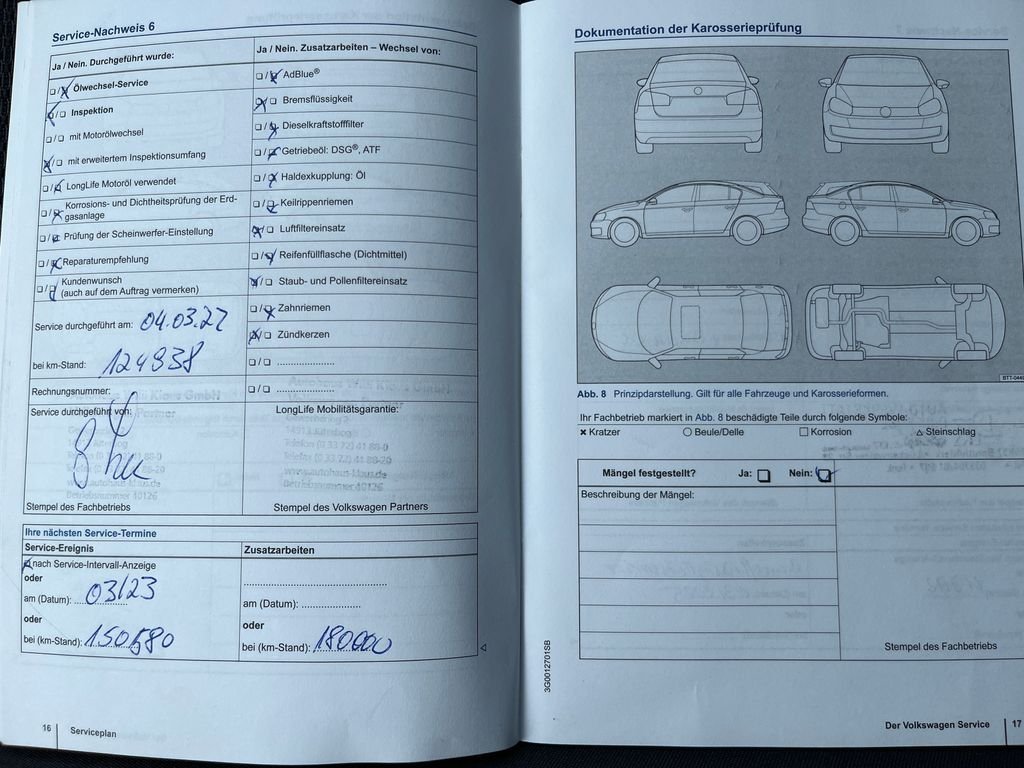 Service-Nachweis 6
Ja / Nein. Durchgeführt wurde:
Ölwechsel-Service
Inspektion
mit Motorölwechsel
mit erweitertem Inspektionsumfang
LongLife Motoröl verwendet
Korrosions- und Dichtheitsprüfung der Erd-
gasanlage
Prüfung der Scheinwerfer-Einstellung
Reparaturempfehlung
Kundenwunsch
(auch auf dem Auftrag vermerken)
Service durchgeführt am: 04.03.22
bei km-Stand: 124938
Rechnungsnummer:
Service durchgeführt von:
Stempel des Fachbetriebs
Ja / Nein. Zusatzarbeiten – Wechsel von:
AdBlue®
Bremsflüssigkeit
Dieselkraftstofffilter
Getriebeöl: DSG®, ATF
Haldexkupplung: Öl
Keilrippenriemen
Luftfiltereinsatz
Reifenfüllflasche (Dichtmittel)
Staub- und Pollenfiltereinsatz
Zahnriemen
Zündkerzen
LongLife Mobilitätsgarantie:
Telefon (0 33 72) 41 88-0
Telefax (0 33 72) 41 88-20
www.autohaus-klaus.de
Betriebsnummer 40126
Stempel des Volkswagen Partners
Ihre nächsten Service-Termine
Service-Ereignis
nach Service-Intervall-Anzeige
oder
am (Datum): 03/23
oder
bei (km-Stand): 150580
Zusatzarbeiten
am (Datum):
oder
bei (km-Stand): 180000
16 Serviceplan
Dokumentation der Karosserieprüfung
Abb. 8 Prinzipdarstellung. Gilt für alle Fahrzeuge und Karosserieformen.
Ihr Fachbetrieb markiert in Abb. 8 beschädigte Teile durch folgende Symbole:
Kratzer Beule/Delle Korrosion Steinschlag
Mängel festgestellt? Ja: Nein:
Beschreibung der Mängel:
Stempel des Fachbetriebs
3G0012701SB
Der Volkswagen Service 17